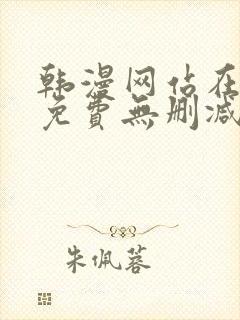 韩漫网站在
免費無删减
朱佩蓉